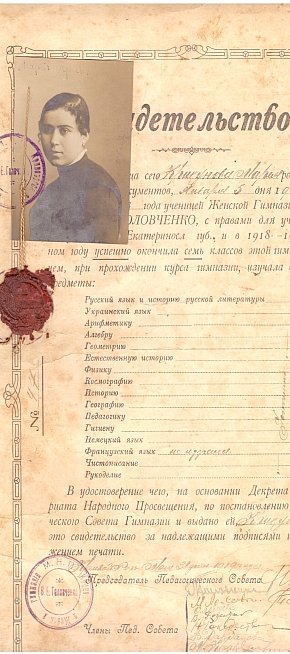 детельство
на сего
документов, Января 5 дня 19
года ученицей Женской Гимназ
ОЛОВЧЕНКО, с правами для уч
Екатериносл. губ., и в 1918-1
ном году успешно окончила семь классов этой гим
чем, при прохождении курса гимназии, изучала
редметы:
Русский язык и историю русской литературы
Украинский язык
Арифметику
Алгебру
Геометрию
Естественную историю
Физику
Космографию
Историю
Географию
Педагогику
Гигиену
Немецкий язык
Французский язык не изучала
Чистописание
Рукоделие
№
В удостоверение чего, на основании Декрета
риата Народного Просвещения, по постановлению
ческого Совета Гимназии и выдано ей,
это свидетельство за надлежащими подписями и
жением печати.
Председатель Педагогического Совета
Члены Пед. Совета